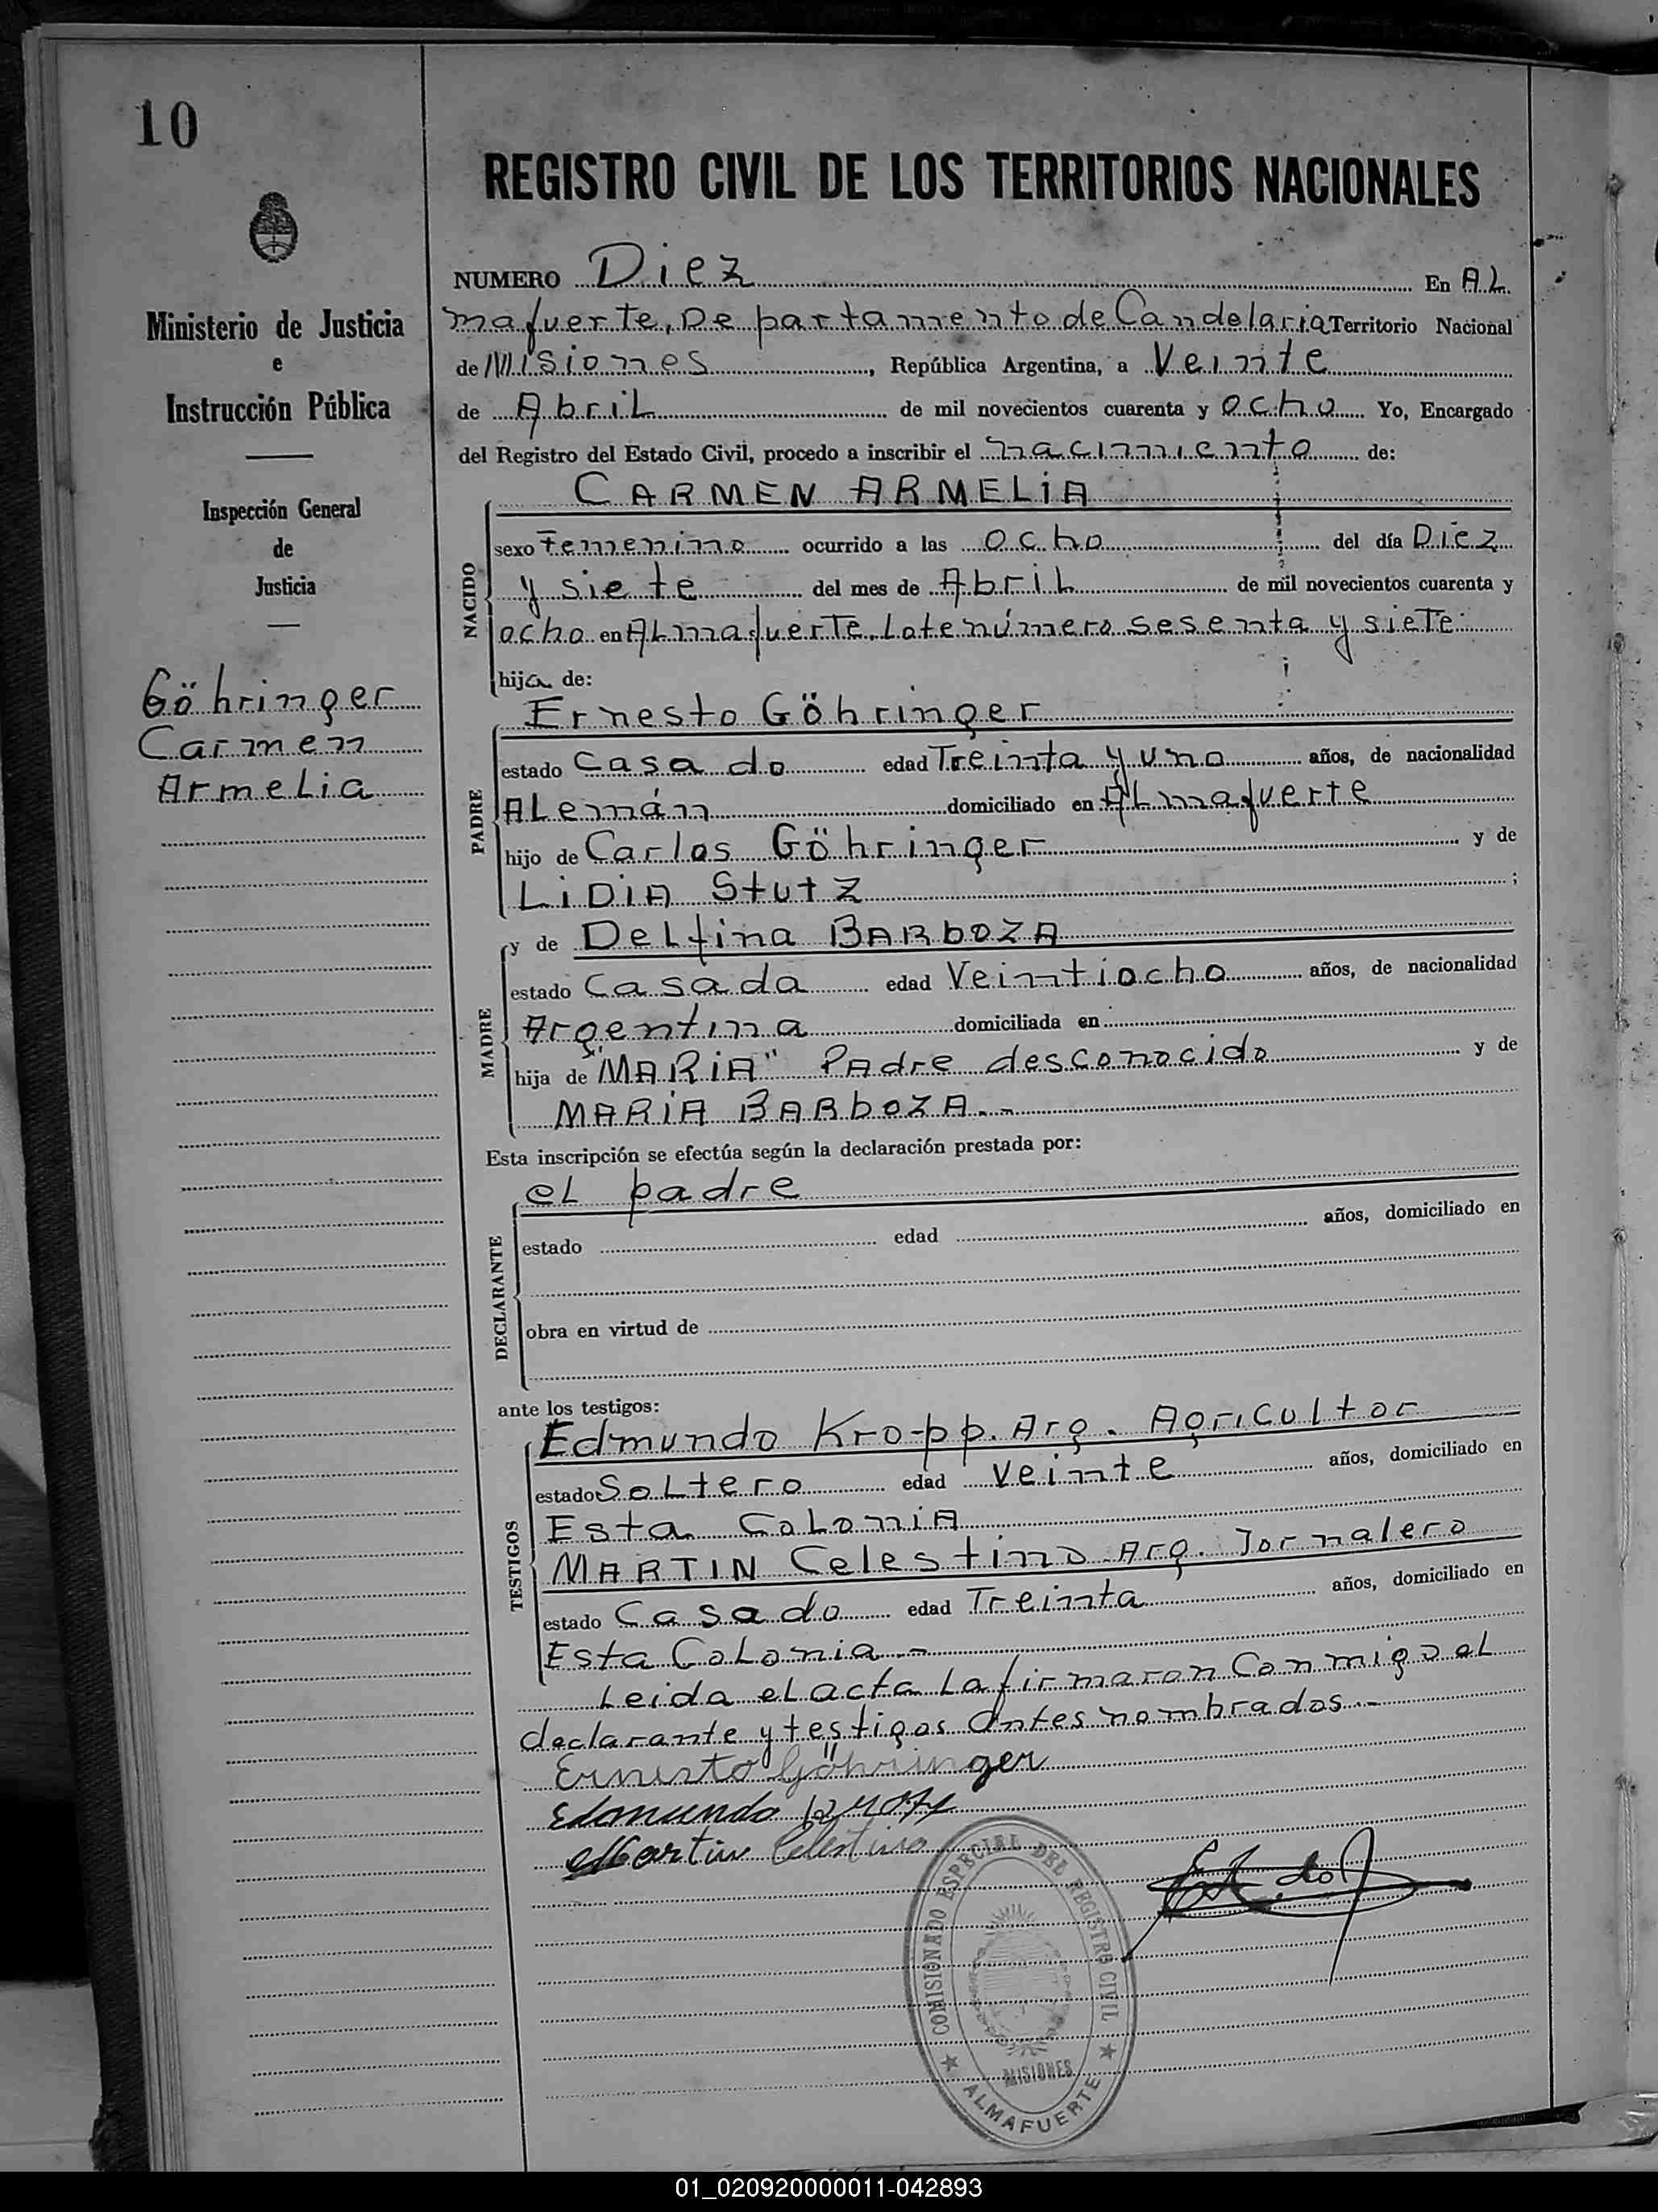 10
REGISTRO CIVIL DE LOS TERRITORIOS NACIONALES
Ministerio de Justicia
e
Instrucción Pública
Inspección General
de
Justicia
Göhringer
Carmen
Armelia
NUMERO Diez En AL
mafuerte, Departamento de Candelaria Territorio Nacional
de Misiones, República Argentina, a Veinte
de Abril de mil novecientos cuarenta y ocho Yo, Encargado
del Registro del Estado Civil, procedo a inscribir el nacimiento de:
NACIDO
CARMEN ARMELiA
sexo Femenino ocurrido a las ocho del día Diez
y siete del mes de Abril de mil novecientos cuarenta y
ocho en ALmafuerte, Lote número sesenta y siete
hija de:
PADRE
Ernesto Göhringer
estado Casado edad Treinta y uno años, de nacionalidad
ALemán domiciliado en ALmafuerte
hijo de Carlos Göhringer y de
LiDiA Stutz ;
MADRE
y de DeLfina BARboZA
estado Casada edad Veintiocho años, de nacionalidad
Argentina domiciliada en
hija de "MARiA" PAdre desconocido y de
MARiA BARboZA.-
Esta inscripción se efectúa según la declaración prestada por:
DECLARANTE
eL padre
estado edad años, domiciliado en
obra en virtud de
ante los testigos:
TESTIGOS
Edmundo Kropp. Arg. Agricultor
estado SoLtero edad veinte años, domiciliado en
Esta CoLoniA
MARTIN Celestino Arg. Jornalero
estado Casado edad Treinta años, domiciliado en
Esta CoLonia.-
Leida eL acta La firmaron Conmigo eL
declarante y testigos antes nombrados.-
Ernesto Göhringer
Edmundo Kropp
Martin Celestino
COMISIONADO ESPECIAL DEL REGISTRO CIVIL
MISIONES
ALMAFUERTE
01_020920000011-042893